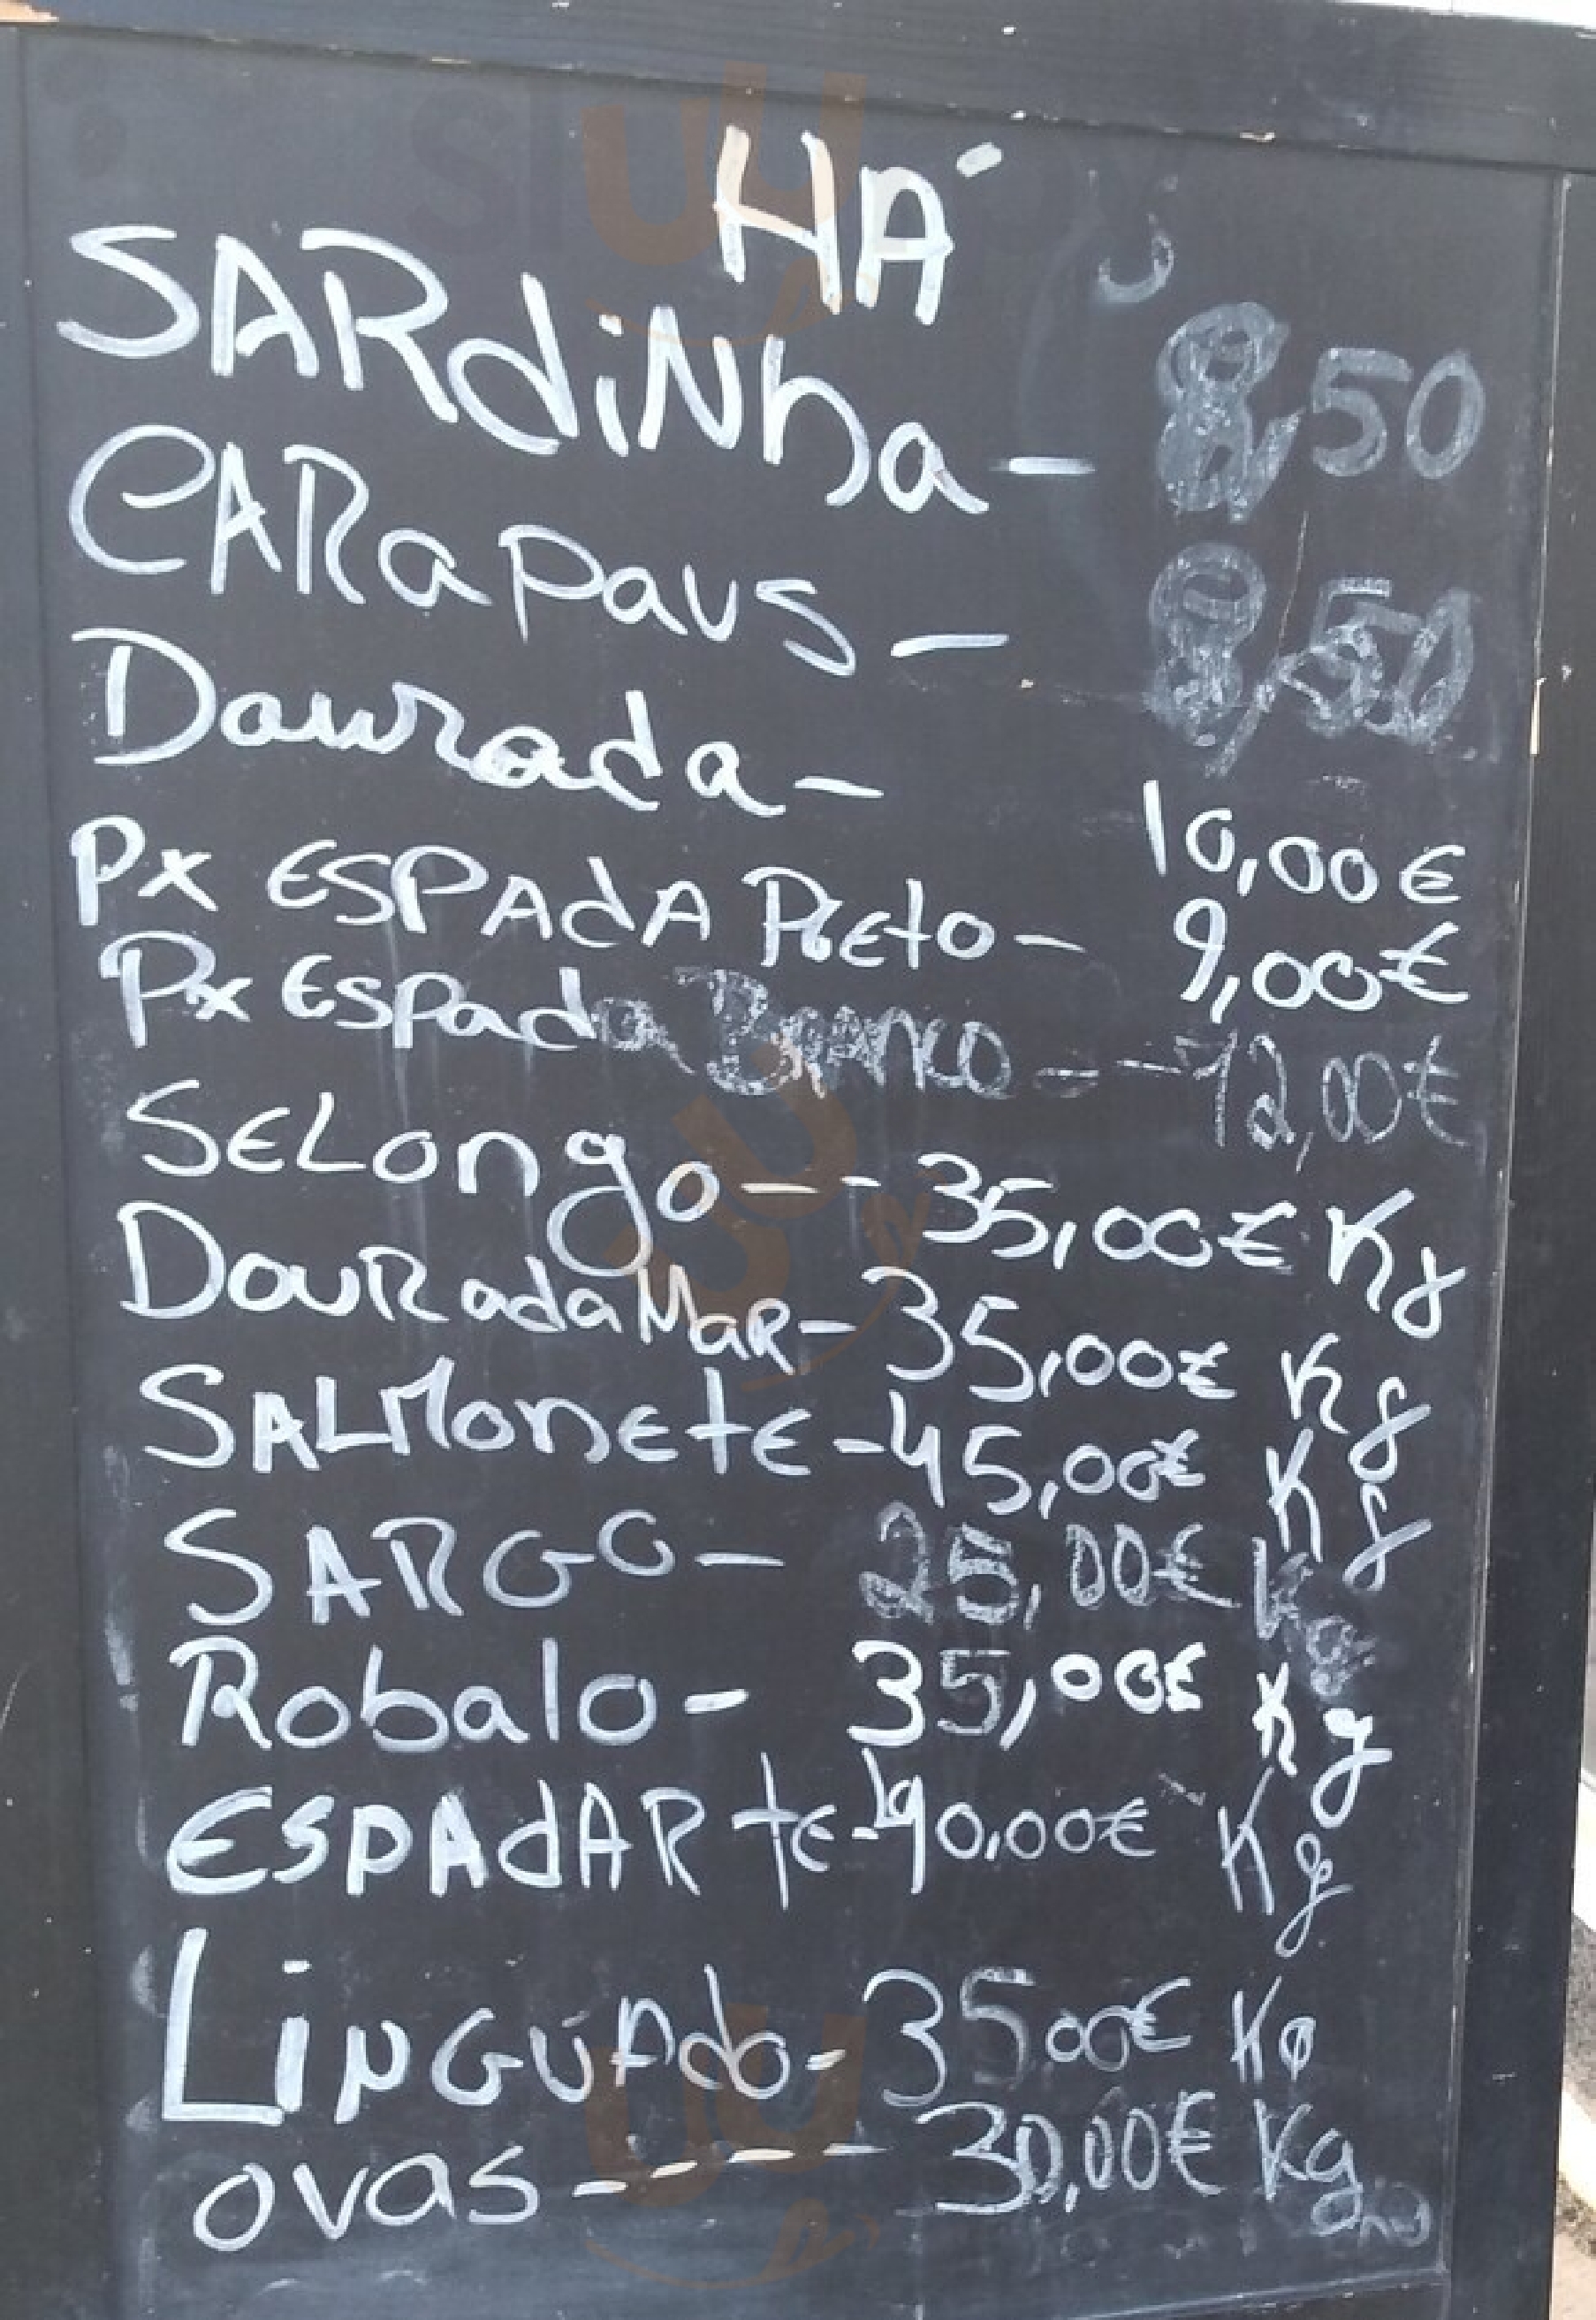 HÁ
SARdiNha - 8,50
CARapaus - 8,50
Dourada - 10,00€
Px ESPAdA PREto - 9,00€
Px Espada Branco - - 12,00€
SELongo - - - 35,00€ Kg
DouRada MaR - 35,00€ Kg
SALMonete - 45,00€ Kg
SARGO - 25,00€ Kg
Robalo - 35,00€ Kg
ESPAdARte - 40,00€ Kg
LiNGUAdo - 35,00€ Kg
ovas - - - - - 30,00€ Kg